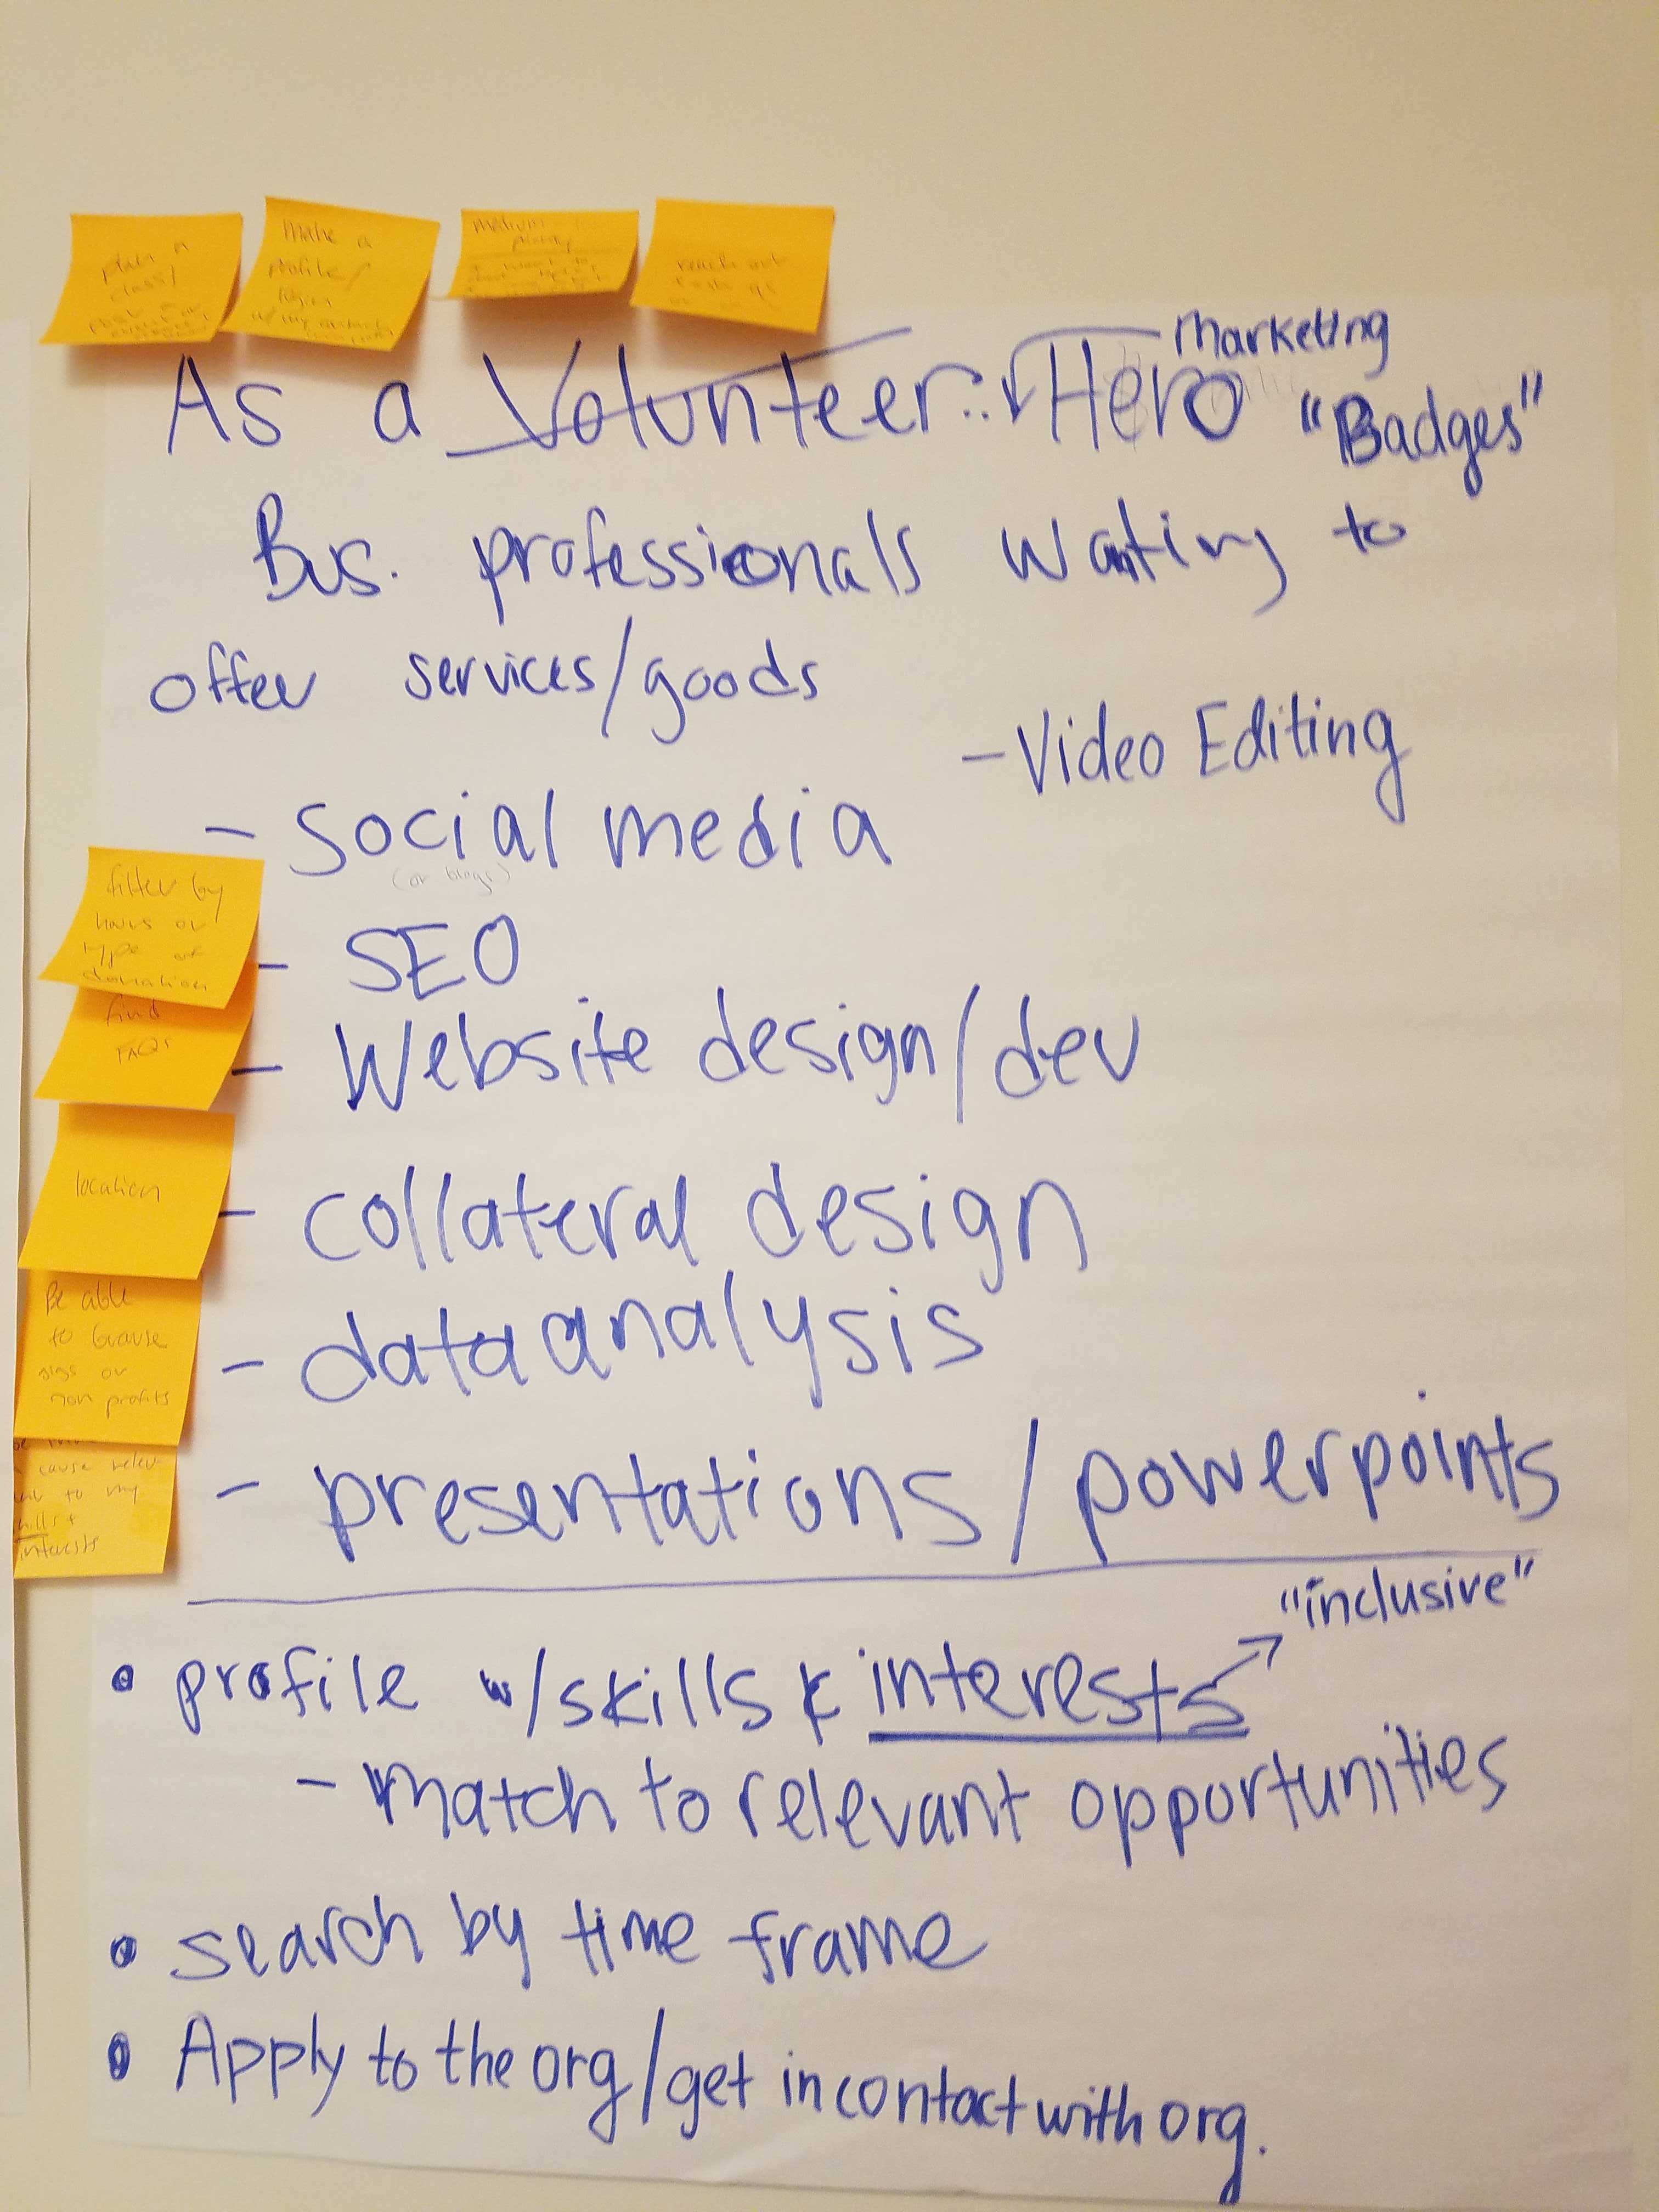 plan a
class/
make a
profile/
login
medium
reach out
Marketing
As a Volunteer... Hero "Badges"
Bus. professionals wanting to
offer services/goods
- Video Editing
- Social media
(or blogs)
- SEO
- Website design/dev
- collateral design
- data analysis
- presentations/powerpoints
filter by
hours or
type of
donation
find
FAQs
location
Be able
to browse
orgs or
non profits
cause relev
to my
skills +
interests
"inclusive"
• profile w/skills & interests
- Match to relevant opportunities
• search by time frame
• Apply to the org/get in contact with org.